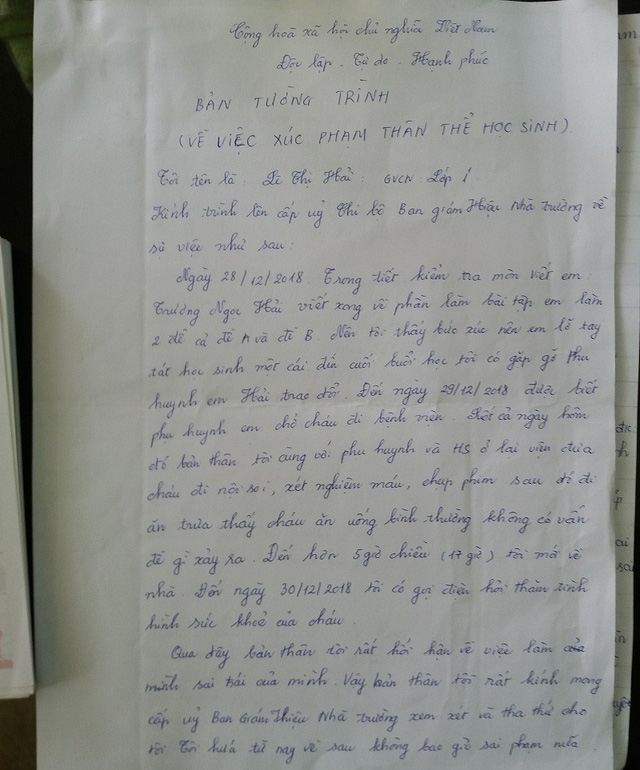 Cộng hoà xã hội chủ nghĩa Việt Nam
Độc lập - Tự do - Hạnh phúc
BẢN TƯỜNG TRÌNH
(VỀ VIỆC XÚC PHẠM THÂN THỂ HỌC SINH)
Tôi tên là: Lê Thị Hải: GVCN Lớp 1
Kính trình lên cấp uỷ Chi bộ Ban giám Hiệu Nhà trường về
sự việc như sau:
Ngày 28/12/2018. Trong tiết kiểm tra môn viết em:
Trương Ngọc Hải viết xong về phần làm bài tập em làm
2 đề cả đề A và đề B. Nên tôi thấy bức xúc nên em lỡ tay
tát học sinh một cái đến cuối buổi học tôi có gặp gỡ Phụ
huynh em Hải trao đổi. Đến ngày 29/12/2018 được biết
phụ huynh em chở cháu đi bệnh viện. Suốt cả ngày hôm
đó bản thân tôi cùng với phụ huynh và HS ở lại viện đưa
cháu đi nội soi, xét nghiệm máu, chụp phim sau đó đi
ăn trưa thấy cháu ăn uống bình thường không có vấn
đề gì xảy ra. Đến hơn 5giờ chiều (17 giờ) tôi mới về
nhà. Đến ngày 30/12/2018 tôi có gọi điện hỏi thăm tình
hình sức khoẻ của cháu.
Qua đây bản thân tôi rất hối hận về việc làm của
mình sai trái của mình. Vậy bản thân tôi rất kính mong
cấp uỷ Ban Giám Hiệu Nhà trường xem xét và tha thứ cho
tôi Tôi hứa từ nay về sau không bao giờ sai phạm nữa